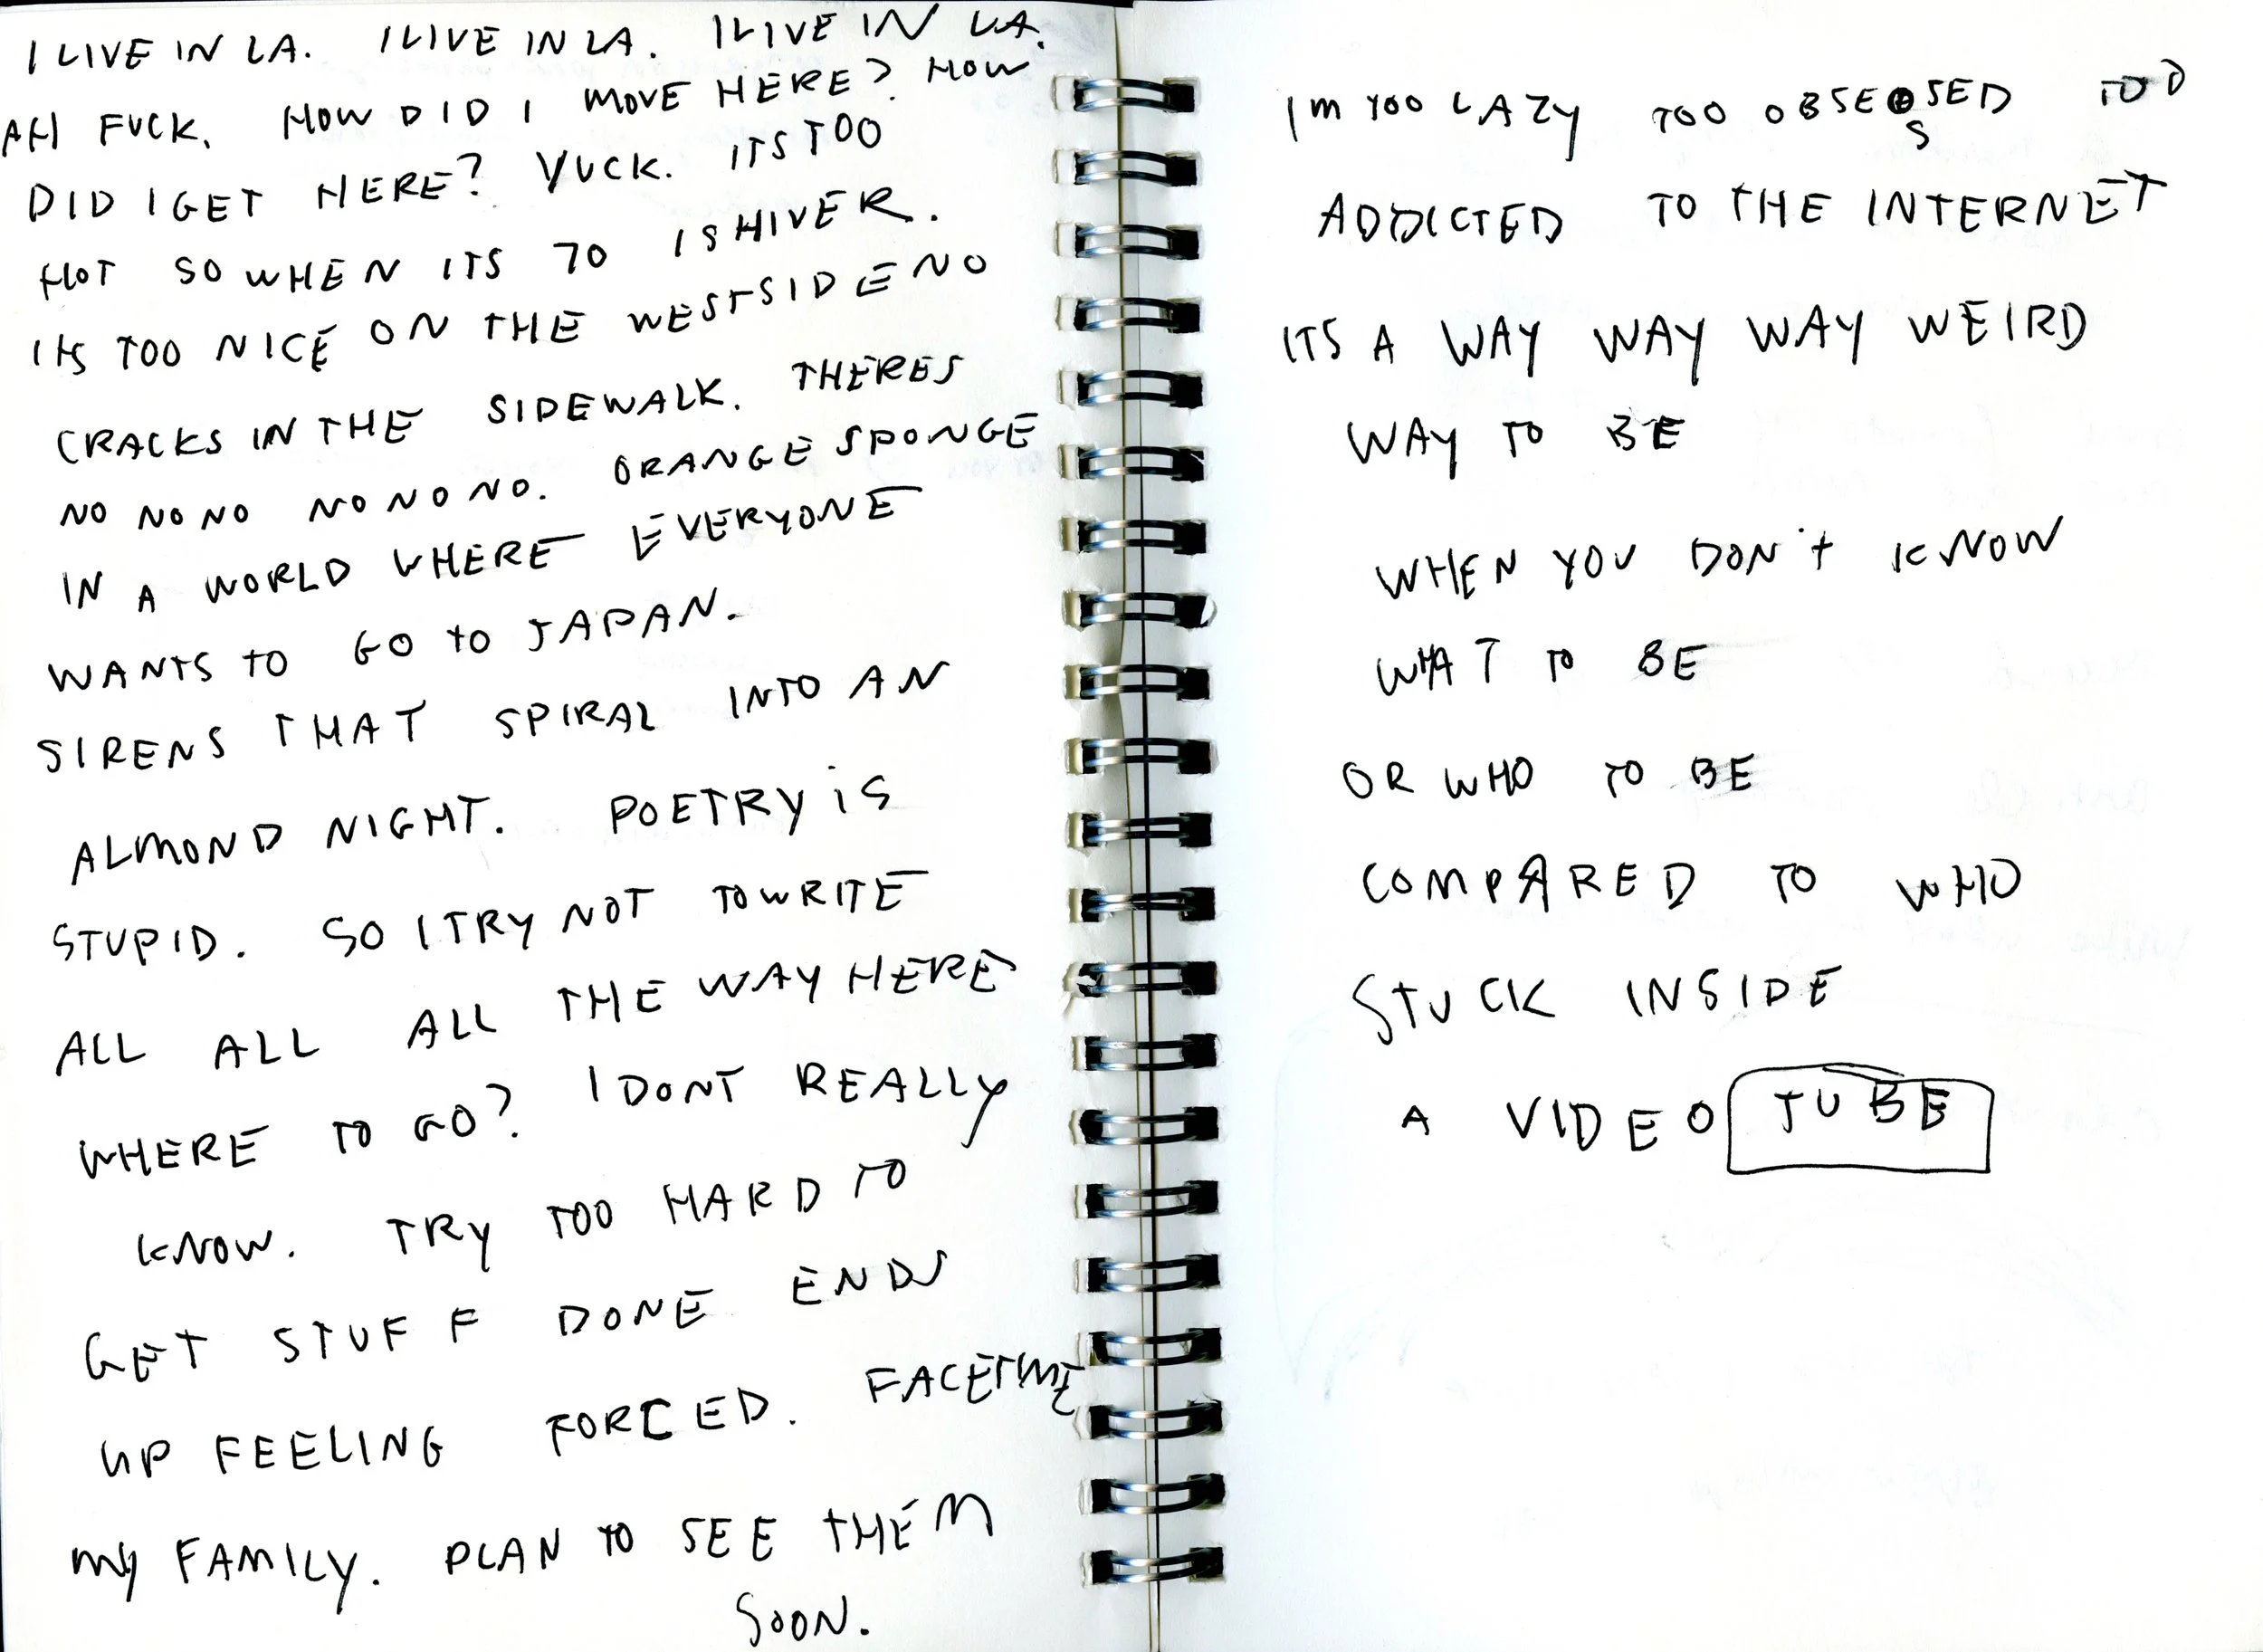 I LIVE IN LA. I LIVE IN LA. I LIVE IN LA.
AH FUCK. HOW DID I MOVE HERE? HOW
DID I GET HERE? YUCK. ITS TOO
HOT SO WHEN ITS 70 I SHIVER.
ITS TOO NICE ON THE WESTSIDE NO
CRACKS IN THE SIDEWALK. THERES
NO NO NO NO NO NO. ORANGE SPONGE
IN A WORLD WHERE EVERYONE
WANTS TO GO TO JAPAN.
SIRENS THAT SPIRAL INTO AN
ALMOND NIGHT. POETRY iS
STUPID. SO I TRY NOT TO WRITE
ALL ALL ALL THE WAY HERE
WHERE TO GO? I DONT REALLY
KNOW. TRY TOO HARD TO
GET STUFF DONE ENDS
UP FEELING FORCED. FACETIME
MY FAMILY. PLAN TO SEE THEM
SOON.
IM TOO LAZY TOO OBSESSED TOO
ADDICTED TO THE INTERNET
ITS A WAY WAY WAY WEIRD
WAY TO BE
WHEN YOU DON't KNOW
WHAT TO BE
OR WHO TO BE
COMPARED TO WHO
STUCK INSIDE
A VIDEO TUBE